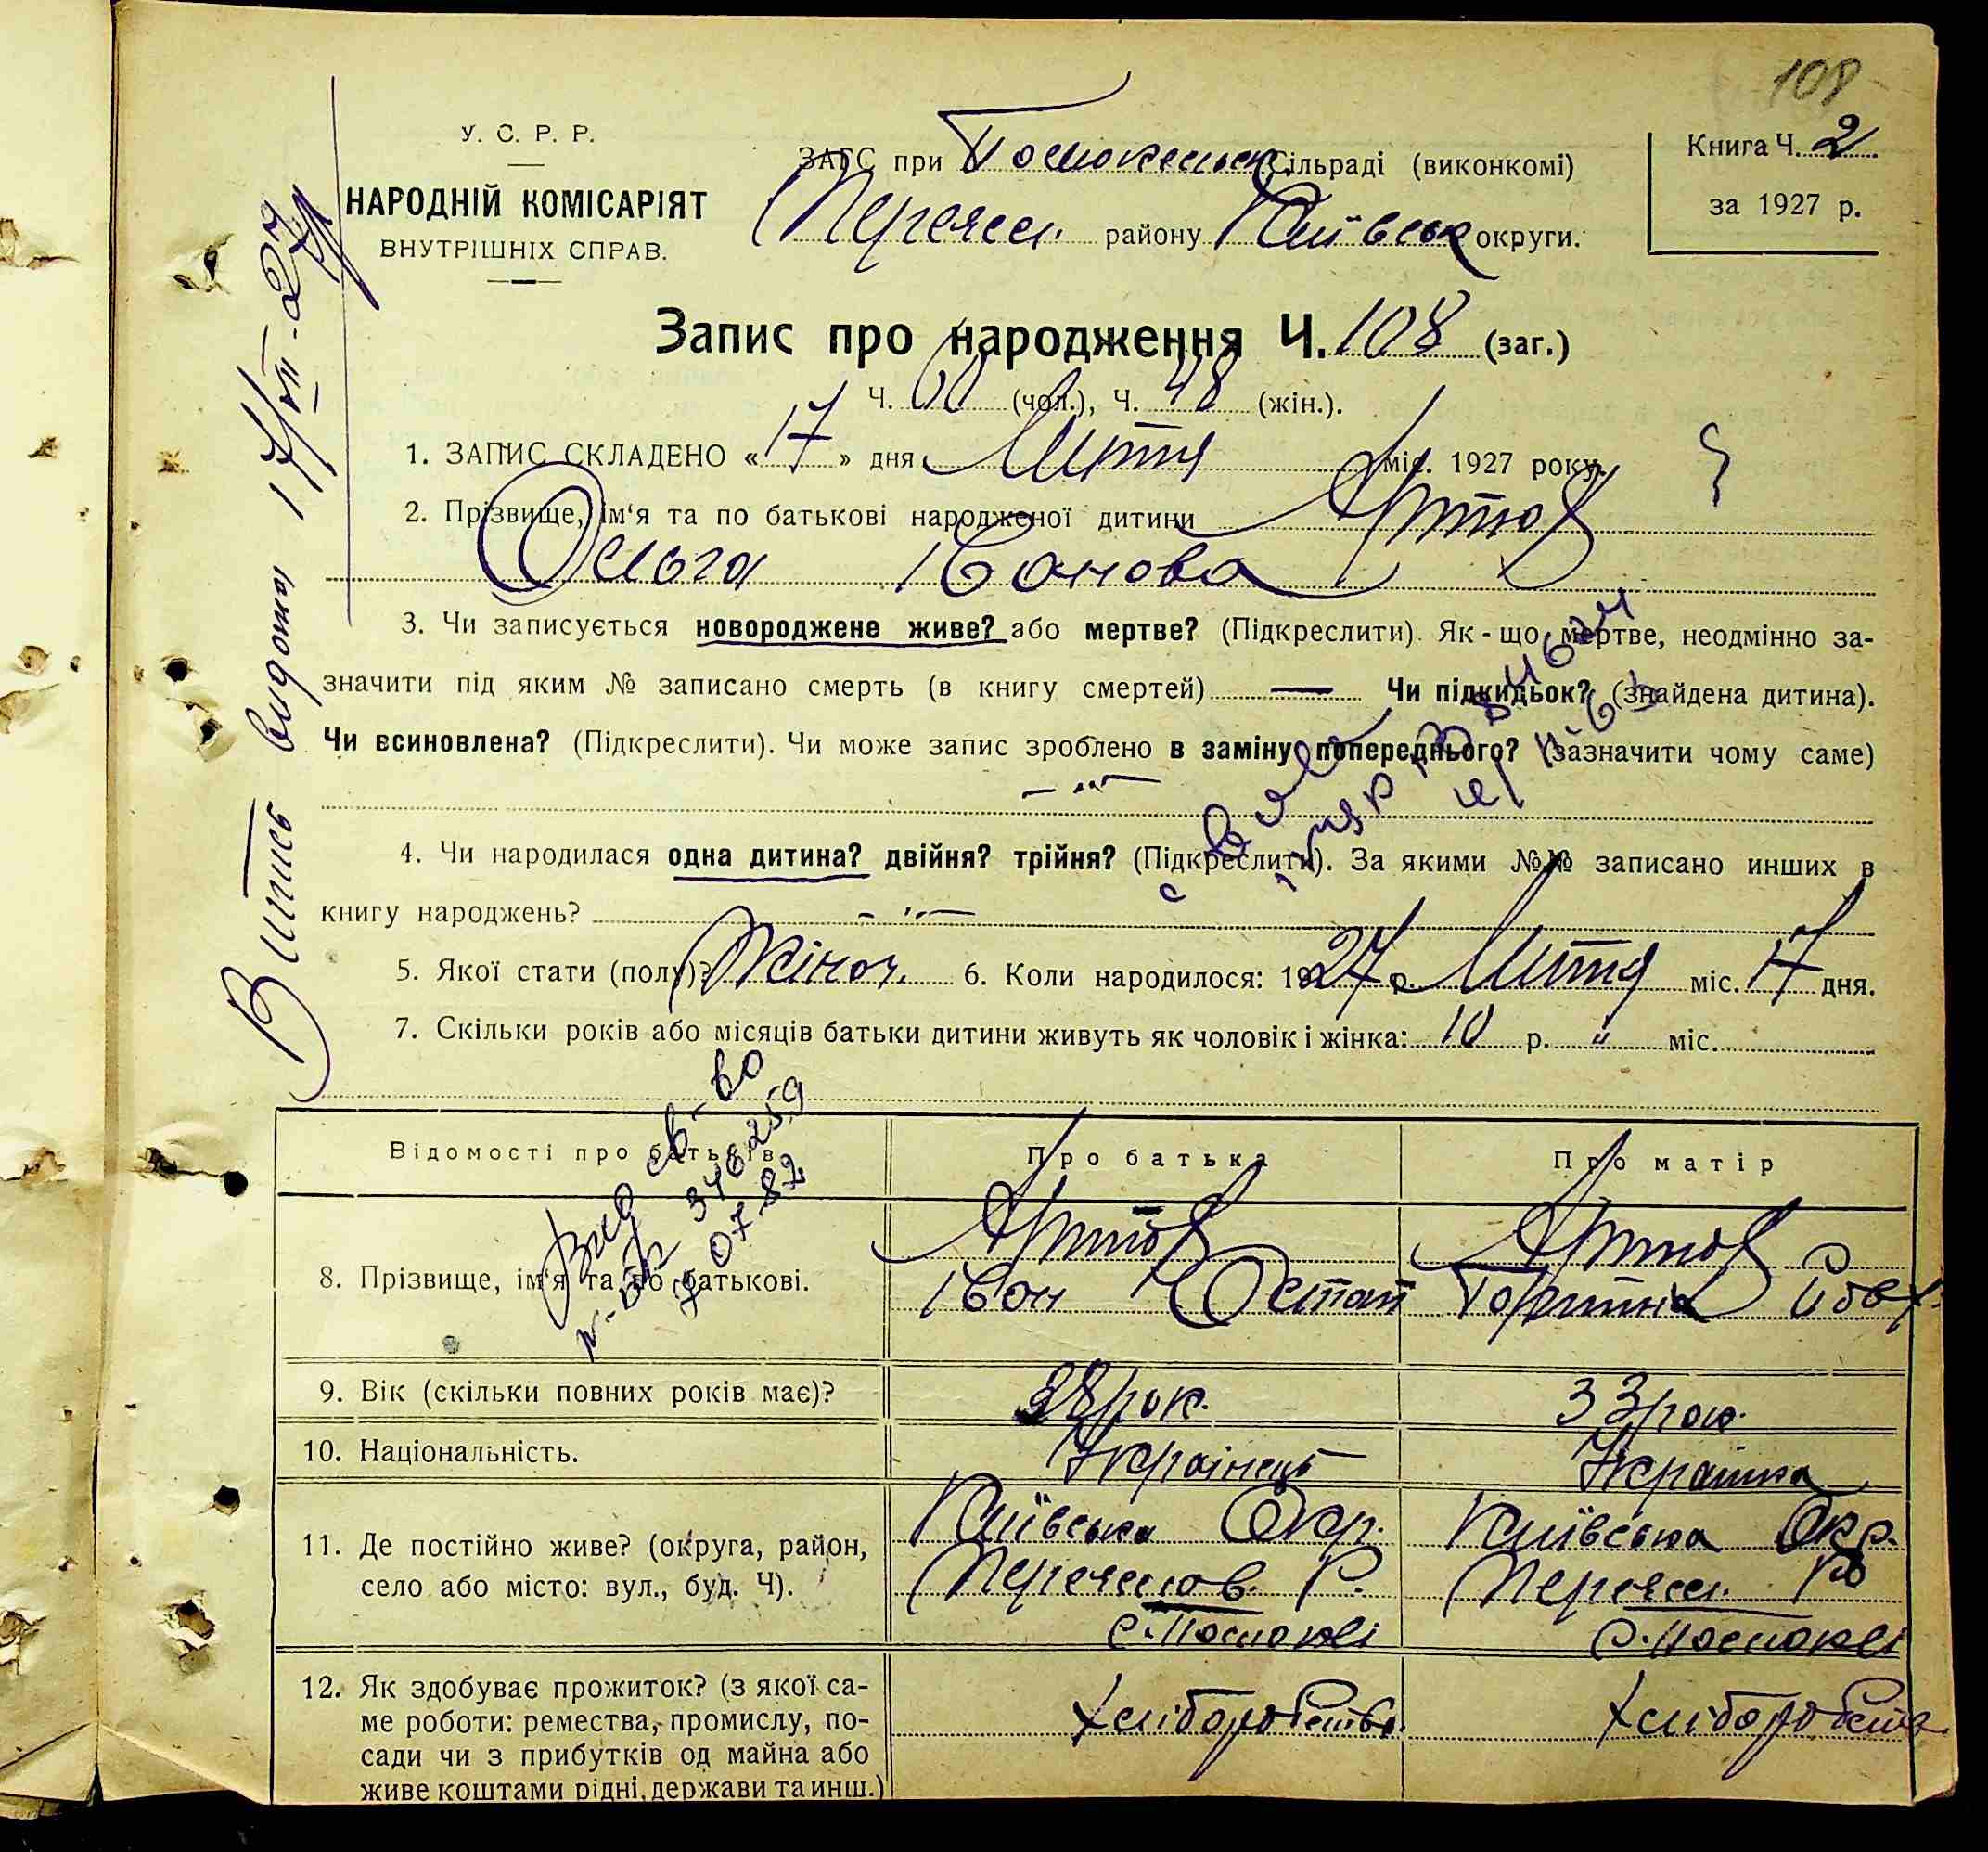 108
У. С. Р. Р.
НАРОДНІЙ КОМІСАРІЯТ
ВНУТРІШНІХ СПРАВ.
ЗАГС при Помокельск Сільраді (виконкомі)
Переясл. району Київськ округи.
Книга Ч. 2
за 1927 р.
Запис про народження Ч. 108 (заг.)
Ч. 60 (чол.), Ч. 48 (жін.).
1. ЗАПИС СКЛАДЕНО « 17 » дня Липня міс. 1927 року.
2. Прізвище, ім'я та по батькові народженої дитини
Ольга Іванова
3. Чи записується новороджене живе? або мертве? (Підкреслити). Як-що мертве, неодмінно за-
значити під яким № записано смерть (в книгу смертей) — Чи підкидьок? (знайдена дитина).
Чи всиновлена? (Підкреслити). Чи може запис зроблено в заміну попереднього? (зазначити чому саме)
4. Чи народилася одна дитина? двійня? трійня? (Підкреслити). За якими №№ записано инших в
книгу народжень?
5. Якої стати (полу)? Жіноч. 6. Коли народилося: 1927 р. Липня міс. 17 дня.
7. Скільки років або місяців батьки дитини живуть як чоловік і жінка: 10 р. " міс.
Витись видана 17/VII-27
Відомості про батьків
Про батька
Про матір
8. Прізвище, ім'я та по батькові.
Іван Остап
9. Вік (скільки повних років має)?
38 рок.
33 рок.
10. Національність.
Українець
Українка
11. Де постійно живе? (округа, район,
село або місто: вул., буд. Ч).
Київська Окр.
Переяслов. Р.
Київська Окр.
Переясл. Р
12. Як здобуває прожиток? (з якої са-
ме роботи: ремества, промислу, по-
сади чи з прибутків од майна або
живе коштами рідні, держави та инш.)
Хліборобство
Хліборобств